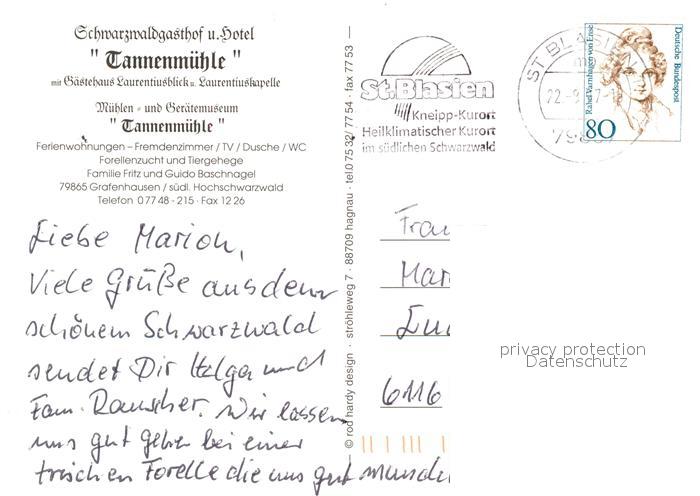 Schwarzwaldgasthof u. Hotel
" Tannenmühle "
mit Gästehaus Laurentiusblick u. Laurentiuskapelle
Mühlen - und Gerätemuseum
" Tannenmühle "
Ferienwohnungen – Fremdenzimmer / TV / Dusche / WC
Forellenzucht und Tiergehege
Familie Fritz und Guido Baschnagel
79865 Grafenhausen / südl. Hochschwarzwald
Telefon 0 77 48 - 215 · Fax 12 26
Liebe Marion,
Viele Grüße aus dem
schönem Schwarzwald
sendet Dir Helga und
Fam. Rauscher. Wir lassen
uns gut gehen bei einer
frischen Forelle die uns gut munde
© rod hardy design · ströhleweg 7 · 88709 hagnau · tel.0 75 32/ 77 54 · fax 77 53
St. Blasien
Kneipp-Kurort
Heilklimatischer Kurort
im südlichen Schwarzwald
ST BLASIEN
22.-9.
Deutsche Bundespost
Rahel Varnhagen von Ense
80
Frau
Mar
6116
privacy protection
Datenschutz